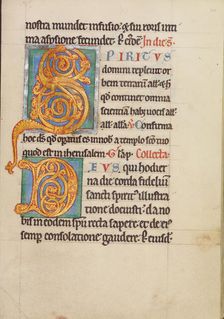 nostra mundet infusio: & sui roris inti
ma aspersione fecundet. p. eund. In die S
PIRITUS
domini repleuit or
bem terrarū alla. & hoc
qd continet omnia
scientiā habꝫ uocis alla.
alla. alla. Confirma
hoc ds qd operatus es in nob a templo sco tuo
quod est in iherusalem. G. Collecta
EUS, qui hodier
na die corda fidelium
sancti spirits illustra
tione docuisti: da no
bis in eodem spū recta sapere. et de ei
semp consolatione gaudere. p. eiusd.